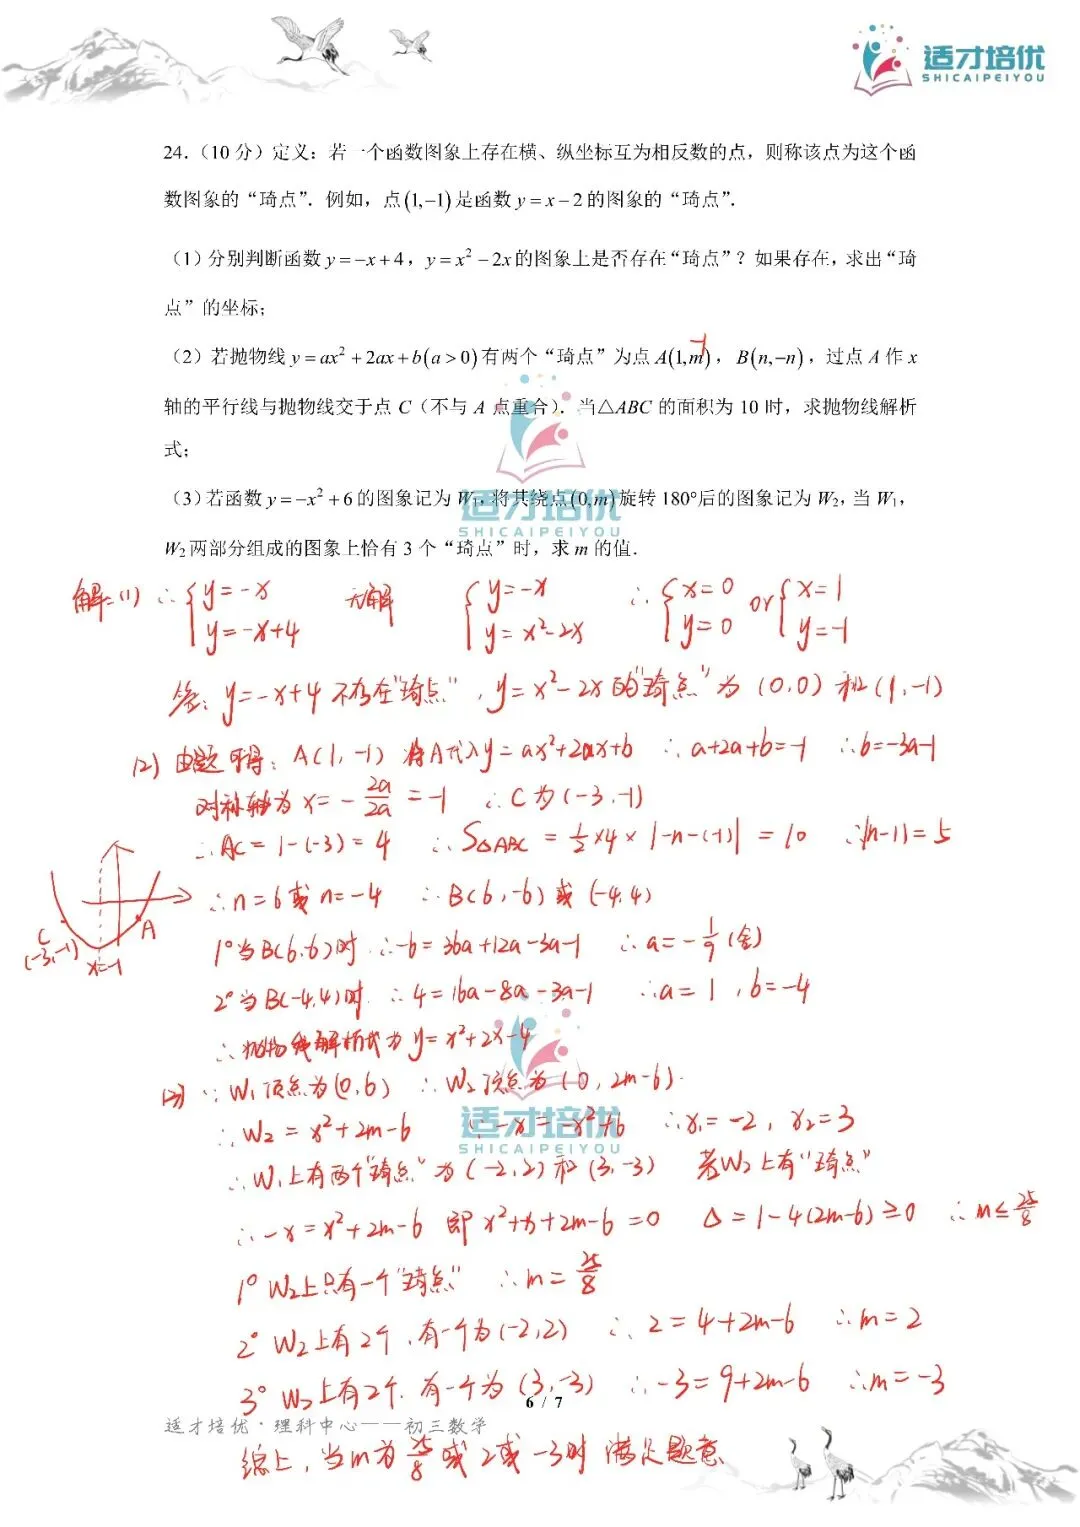 适才培优
SHICAIPEIYOU
24.（10 分）定义：若一个函数图象上存在横、纵坐标互为相反数的点，则称该点为这个函
数图象的“琦点”．例如，点(1,−1)是函数 y = x − 2 的图象的“琦点”．
（1）分别判断函数 y = −x + 4，y = x² − 2x 的图象上是否存在“琦点”？如果存在，求出“琦
点”的坐标；
（2）若抛物线 y = ax² + 2ax + b(a > 0) 有两个“琦点”为点 A(1,m)，B(n,−n)，过点 A 作 x
-1
轴的平行线与抛物线交于点 C（不与 A 点重合）．当△ABC 的面积为 10 时，求抛物线解析
式；
（3）若函数 y = −x² + 6 的图象记为 W₁，将其绕点(0,m)旋转 180°后的图象记为 W₂，当 W₁，
W₂ 两部分组成的图象上恰有 3 个“琦点”时，求 m 的值．
适才培优
SHICAIPEIYOU
解：(1) ∴ { y=-x  y=-x+4  无解  { y=-x  y=x²-2x  ∴ { x=0  y=0  or { x=1  y=-1
答：y=-x+4 不存在“琦点”，y=x²-2x 的“琦点”为 (0,0) 和 (1,-1)
(2) 由题可得：A(1,-1) 将A代入 y=ax²+2ax+b ∴ a+2a+b=-1 ∴ b=-3a-1
对称轴为 x=-2a/2a=-1 ∴ C为(-3,-1)
∴ AC=1-(-3)=4 ∴ S△ABC=1/2×4×|-n-(-1)|=10 ∴ |n-1|=5
∴ n=6或n=-4 ∴ B(6,-6)或(-4,4)
C
(-3,-1)
x=-1
A
1° 当B(6,-6)时 ∴ -6=36a+12a-3a-1 ∴ a=-1/9 (舍)
2° 当B(-4,4)时 ∴ 4=16a-8a-3a-1 ∴ a=1, b=-4
∴ 抛物线解析式为 y=x²+2x-4
(3) ∵ W₁顶点为(0,6) ∴ W₂顶点为(0,2m-6)
∴ W₂=x²+2m-6 ∵ -x=-x²+6 ∴ x₁=-2, x₂=3
适才培优
SHICAIPEIYOU
∴ W₁上有两个“琦点”为(-2,2)和(3,-3) 若W₂上有“琦点”
∴ -x=x²+2m-6 即 x²+x+2m-6=0 Δ=1-4(2m-6)≥0 ∴ m≤25/8
1° W₂上只有一个“琦点” ∴ m=25/8
2° W₂上有2个，有一个为(-2,2) ∴ 2=4+2m-6 ∴ m=2
3° W₂上有2个，有一个为(3,-3) ∴ -3=9+2m-6 ∴ m=-3
6 / 7
适才培优·理科中心——初三数学
综上，当m为25/8或2或-3时 满足题意